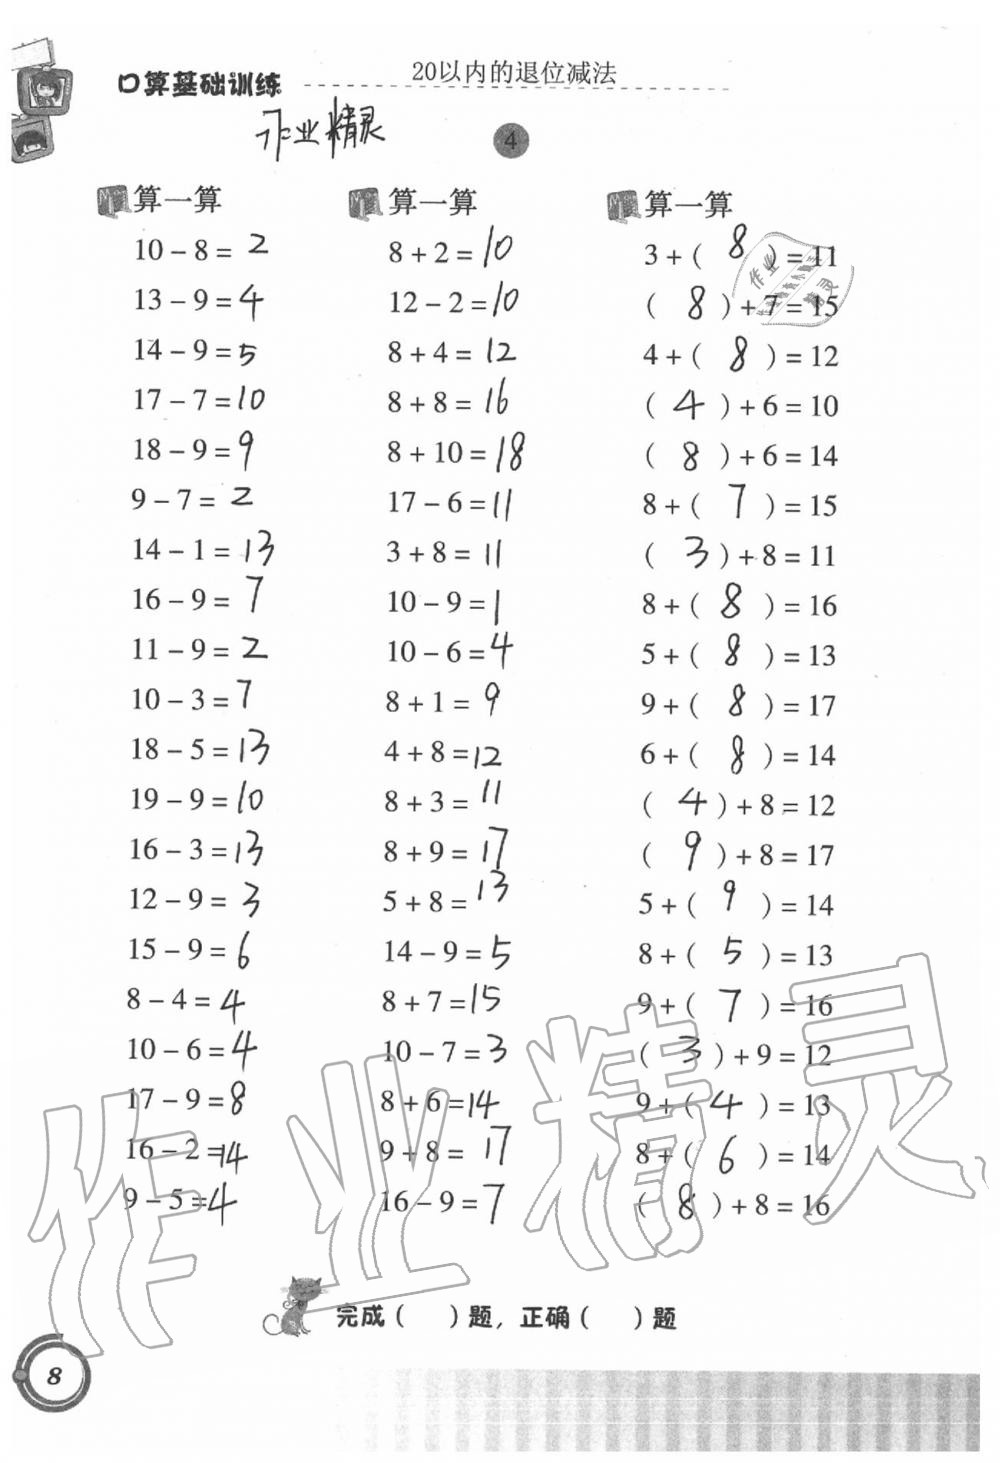 口算基础训练 20以内的退位减法
作业精灵
4
算一算
10-8=2
13-9=4
14-9=5
17-7=10
18-9=9
9-7=2
14-1=13
16-9=7
11-9=2
10-3=7
18-5=13
19-9=10
16-3=13
12-9=3
15-9=6
8-4=4
10-6=4
17-9=8
16-2=14
9-5=4
算一算
8+2=10
12-2=10
8+4=12
8+8=16
8+10=18
17-6=11
3+8=11
10-9=1
10-6=4
8+1=9
4+8=12
8+3=11
8+9=17
5+8=13
14-9=5
8+7=15
10-7=3
8+6=14
9+8=17
16-9=7
算一算
3+(8)=11
(8)+7=15
4+(8)=12
(4)+6=10
(8)+6=14
8+(7)=15
(3)+8=11
8+(8)=16
5+(8)=13
9+(8)=17
6+(8)=14
(4)+8=12
(9)+8=17
5+(9)=14
8+(5)=13
9+(7)=16
(3)+9=12
9+(4)=13
8+(6)=14
(8)+8=16
作业精灵
完成( )题,正确( )题
8